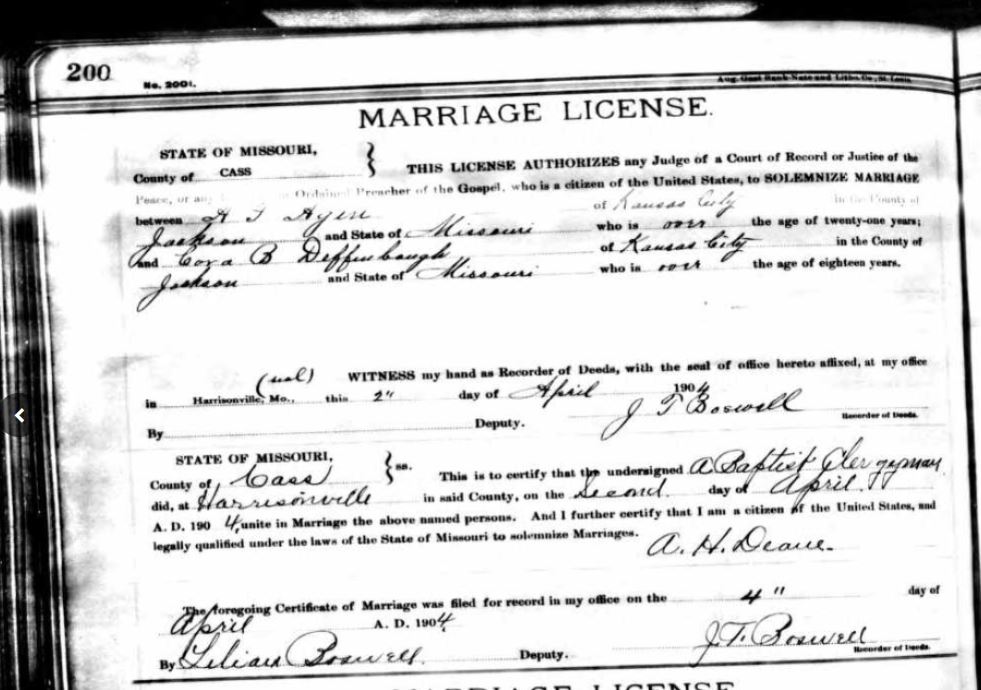 200
No. 2001.
Aug. Gast Bank Note and Litho. Co., St. Louis
MARRIAGE LICENSE.
STATE OF MISSOURI,
County of CASS
THIS LICENSE AUTHORIZES any Judge of a Court of Record or Justice of the
Peace, or any Ordained Preacher of the Gospel, who is a citizen of the United States, to SOLEMNIZE MARRIAGE
between of Kansas City in the County of
Jackson and State of Missouri who is over the age of twenty-one years;
and Cora B Deffenbaugh of Kansas City in the County of
Jackson and State of Missouri who is over the age of eighteen years.
(seal) WITNESS my hand as Recorder of Deeds, with the seal of office hereto affixed, at my office
in Harrisonville, Mo., this 2" day of April 1904
J T Boswell Recorder of Deeds.
By Deputy.
STATE OF MISSOURI,
County of Cass ss. This is to certify that the undersigned A Baptist Clergyman
did, at Harrisonville in said County, on the Second day of April
A. D. 1904, unite in Marriage the above named persons. And I further certify that I am a citizen of the United States, and
legally qualified under the laws of the State of Missouri to solemnize Marriages.
A. H. Deane.
The foregoing Certificate of Marriage was filed for record in my office on the 4" day of
April A. D. 1904
J. T. Boswell Recorder of Deeds.
By Lilian Boswell. Deputy.
MARRIAGE LICENSE